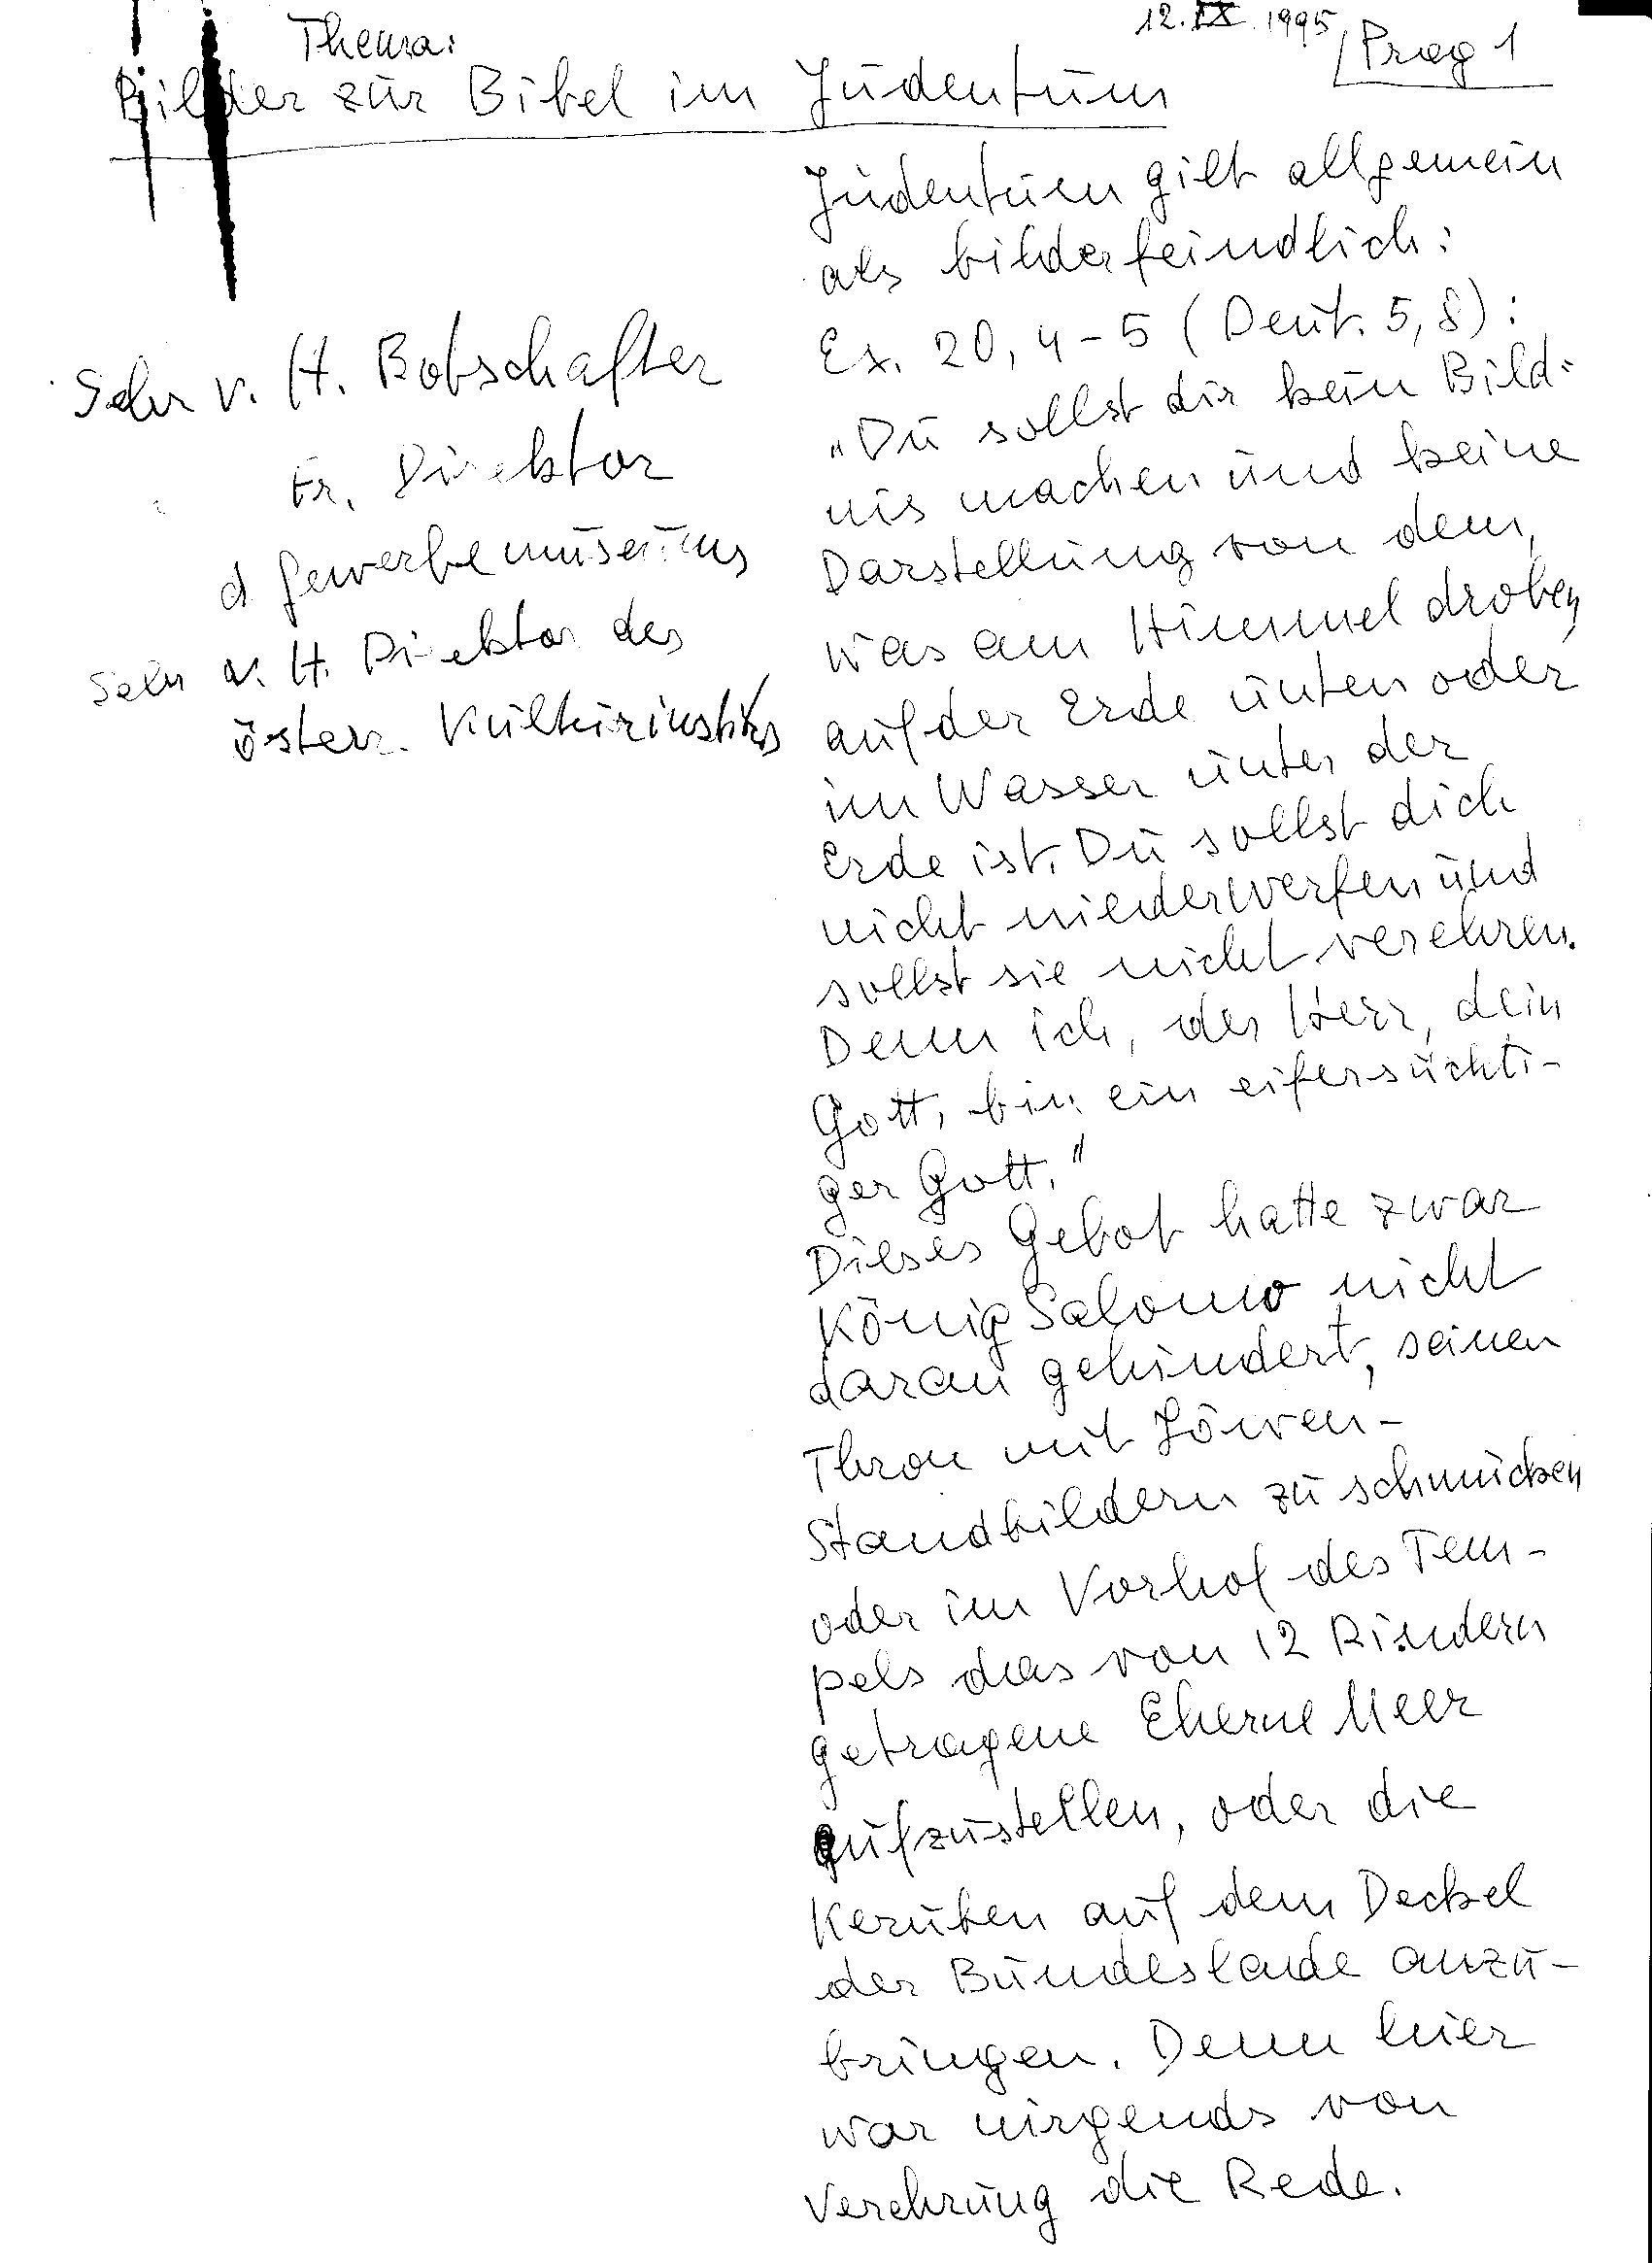 12. IX. 1995
Prag 1
Thema:
Bilder zur Bibel im Judentum
Sehr v. H. Botschafter
Fr. Direktor
d Gewerbemuseums
Sehr v. H. Direktor des
österr. Kulturinstituts
Judentum gilt allgemein
als bilderfeindlich:
Ex. 20, 4-5 (Deut. 5,8):
„Du sollst dir kein Bild-
nis machen und keine
Darstellung von dem,
was am Himmel droben,
auf der Erde unten oder
im Wasser unter der
Erde ist. Du sollst dich
nicht niederwerfen und
sollst sie nicht verehren.
Denn ich, der Herr, dein
Gott, bin ein eifersüchti-
ger Gott."
Dieses Gebot hatte zwar
König Salomo nicht
daran gehindert, seinen
Thron mit Löwen-
Standbildern zu schmücken
oder im Vorhof des Tem-
pels das von 12 Rindern
getragene Eherne Meer
aufzustellen, oder die
Keruben auf dem Deckel
der Bundeslade anzu-
bringen. Denn hier
war nirgends von
Verehrung die Rede.